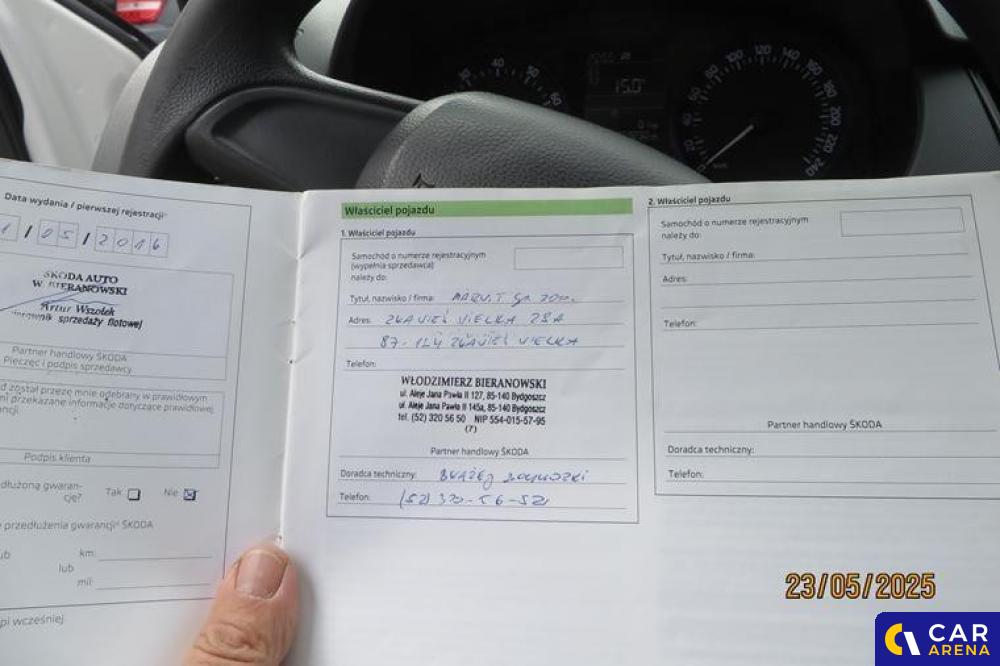 Data wydania / pierwszej rejestracji
1 / 05 / 2016
ŠKODA AUTO
W. BIERANOWSKI
Artur Wszołek
kierownik sprzedaży flotowej
Partner handlowy ŠKODA
Pieczęć i podpis sprzedawcy
d został przeze mnie odebrany w prawidłowym
mi przekazane informacje dotyczące prawidłowej
ancji.
Podpis klienta
dłużoną gwaran-
cję? Tak Nie
przedłużenia gwarancji ŠKODA
ub km:
lub
mil:
pi wcześniej.
Właściciel pojazdu
1. Właściciel pojazdu
Samochód o numerze rejestracyjnym
(wypełnia sprzedawca)
należy do:
Tytuł, nazwisko / firma:
Adres: ZŁAWIEŚ WIELKA 28A
87-124 ZŁAWIEŚ WIELKA
Telefon:
WŁODZIMIERZ BIERANOWSKI
ul. Aleje Jana Pawła II 127, 85-140 Bydgoszcz
ul. Aleje Jana Pawła II 145a, 85-140 Bydgoszcz
tel. (52) 320 56 50 NIP 554-015-57-95
(7)
Partner handlowy ŠKODA
Doradca techniczny: BŁAŻEJ
Telefon: (52) 320-56-52
2. Właściciel pojazdu
Samochód o numerze rejestracyjnym
należy do:
Tytuł, nazwisko / firma:
Adres:
Telefon:
Partner handlowy ŠKODA
Doradca techniczny:
Telefon:
23/05/2025
CAR
ARENA